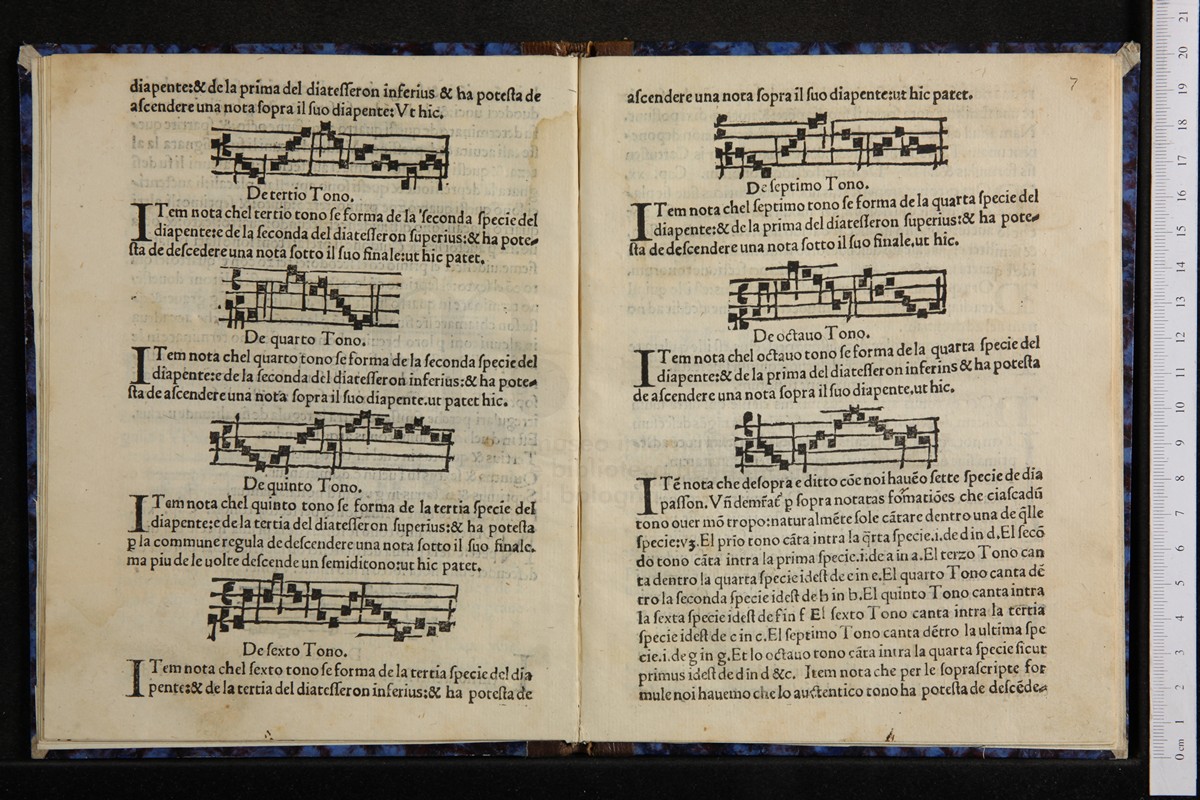 diapente:& de la prima del diateſſeron inferius & ha poteſta de
aſcendere una nota ſopra il ſuo diapente: Vt hic.
De tertio Tono.
ITem nota chel tertio tono ſe forma de la ſeconda ſpecie del
diapente:e de la ſeconda del diateſſeron ſuperius:& ha pote-
ſta de deſcedere una nota ſotto il ſuo finale:ut hic patet.
De quarto Tono.
ITem nota chel quarto tono ſe forma de la ſeconda ſpecie del
diapente:e de la ſeconda del diateſſeron inferius:& ha pote-
ſta de aſcendere una nota ſopra il ſuo diapente.ut patet hic.
De quinto Tono.
ITem nota chel quinto tono ſe forma de la tertia ſpecie del
diapente:e de la tertia del diateſſeron ſuperius:& ha poteſta
ꝑ la commune regula de deſcendere una nota ſotto il ſuo finale.
ma piu de le uolte deſcende un ſemiditono:ut hic patet.
De ſexto Tono.
ITem nota chel ſexto tono ſe forma de la tertia ſpecie del dia
pente:& de la tertia del diateſſeron inferius:& ha poteſta de
7
aſcendere una nota ſopra il ſuo diapente:ut hic patet.
De ſeptimo Tono.
ITem nota chel ſeptimo tono ſe forma de la quarta ſpecie del
diapente:& de la prima del diateſſeron ſuperius:& ha pote-
ſta de deſcendere una nota ſotto il ſuo finale,ut hic.
De octauo Tono.
ITem nota chel octauo tono ſe forma de la quarta ſpecie del
diapente:& de la prima del diateſſeron inferins & ha poteſta
de aſcendere una nota ſopra il ſuo diapente,ut hic.
ITē nota che deſopra e ditto cōe noi hauēo ſette ſpecie de dia
paſſon. Vñ ꝑ ſopra notatas formatiōes che ciaſcadū
tono ouer mō tropo:naturalmēte ſole cātare dentro una de q̄lle
ſpecie:vꝫ.El prio tono cāta intra la q̄rta ſpecie.i.de d in d.El ſecō
do tono cāta intra la prima ſpecie.i.de a in a.El terzo Tono can
ta dentro la quarta ſpecie ideſt de e in e.El quarto Tono canta dē
tro la ſeconda ſpecie ideſt de b in b.El quinto Tono canta intra
la ſexta ſpecie ideſt de f in f El ſexto Tono canta intra la tertia
ſpecie ideſt de c in c.El ſeptimo Tono canta dētro la ultima ſpe
cie.i.de g in g.Et lo octauo tono cāta intra la quarta ſpecie ſicut
primus ideſt de d in d &c. Item nota che per le ſopraſcripte for
mule noi hauemo che lo auctentico tono ha poteſta de deſcēde-